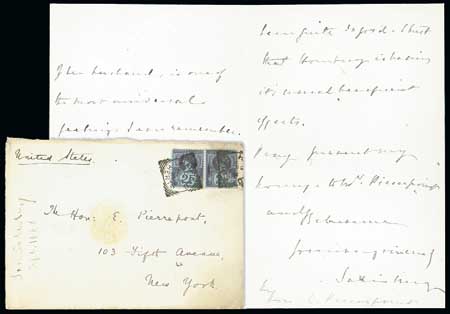 of her husband, is one of
the most universal
feelings I can remember.
is quite so good. I trust
that Homburg is having
its usual beneficent
effects.
Pray present my
homage to Mrs. Pierrepont
and
Believe me
Yours very sincerely
Salisbury
Hon. E. Pierrepont
United States
The Hon: E. Pierrepont,
103 Fifth Avenue,
New York.